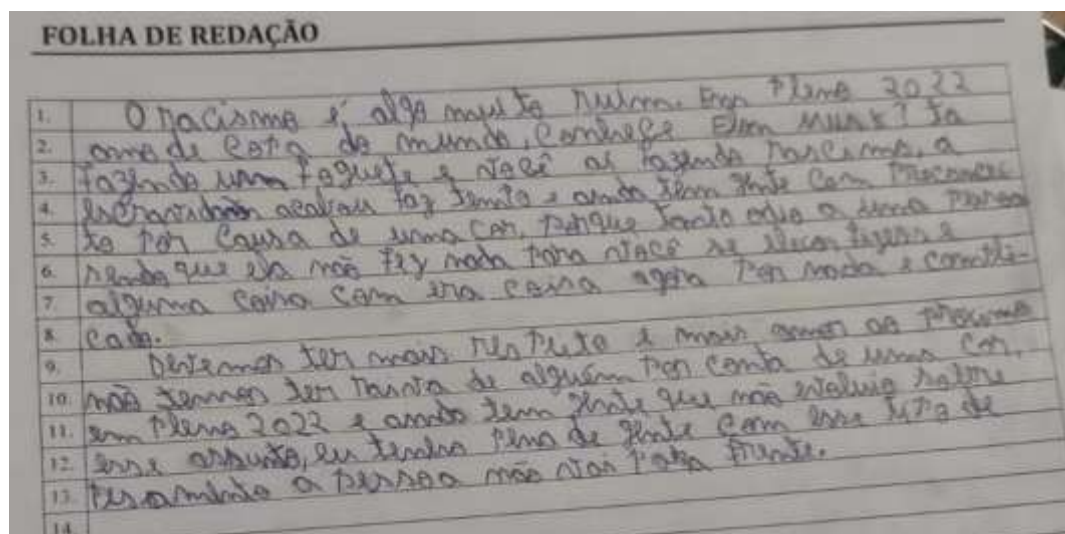 FOLHA DE REDAÇÃO
1. O racismo é algo muito ruim. Em pleno 2022
2. ano de copa do mundo, conhece Elon Musk? Ta
3. fazendo um foguete e você ai fazendo rascismo, a
4. escravidão acabou faz tempo e ainda tem gente com preconcei
5. to por causa de uma cor, porque tanto odio a uma pessoa
6. sendo que ela não fez nada para você se elecar fizesse
7. alguma coisa com era coisa agora por nada e compli-
8. cado.
9. Devemos ter mais respeito e mais amor ao proximo
10. não temos ter raiva de alguém por conta de uma cor,
11. em pleno 2022 e ainda tem gente que não evoluiu sobre
12. esse assunto, eu tenho pena de gente com esse tipo de
13. pesamento a pessoa não vai para frente.
14.